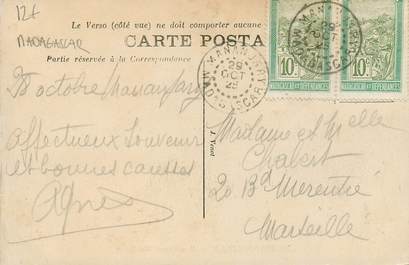 12€
MADAGASCAR
Le Verso (côté vue) ne doit comporter aucune
CARTE POSTA
Partie réservée à la Correspondance
28 octobre Mananjary
Affectueux Souvenir
et bonnes causettes
Agnès
J. Venot
MANANJARY
29
OCT
MADAGASCAR
MANANJARY
29
OCT
25
MADAGASCAR
10c 10c
MADAGASCAR ET DÉPENDANCES MADAGASCAR ET DÉPENDANCES
Madame et Melle
Chabert
20 Bd Merentié
Marseille